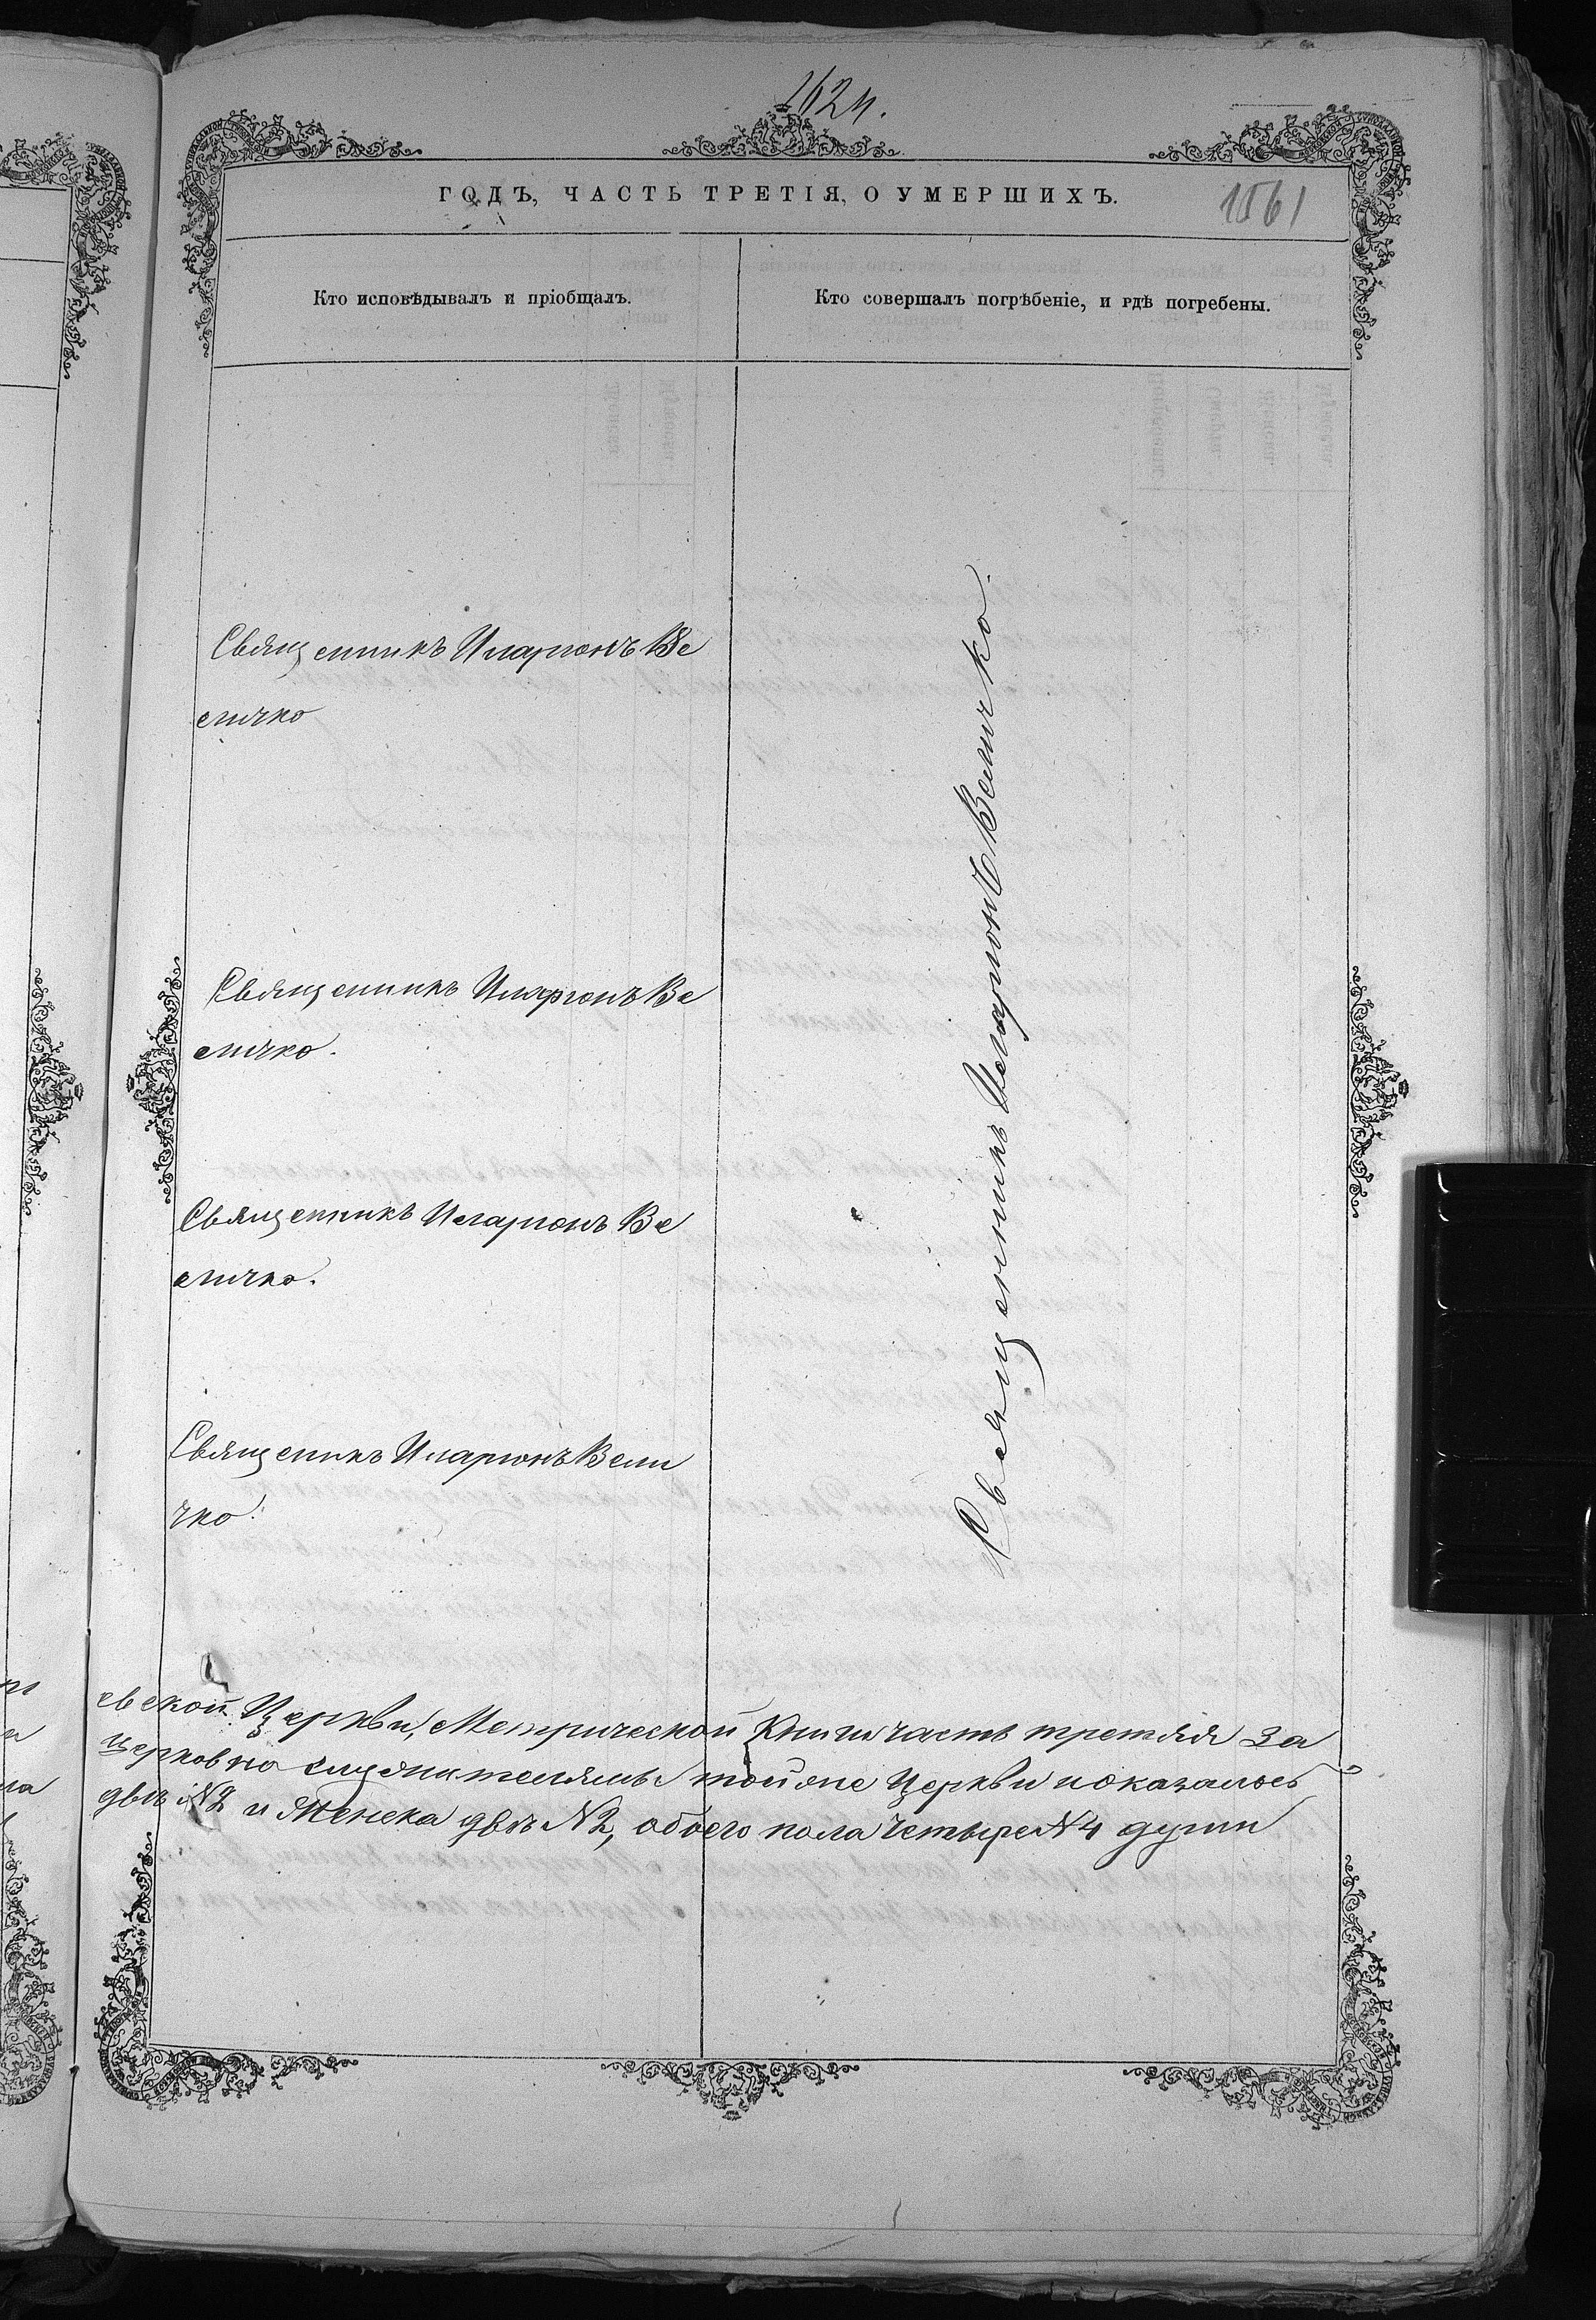 1624.
ГОДЪ, ЧАСТЬ ТРЕТІЯ, О УМЕРШИХЪ.
1561
Кто исповѣдывалъ и пріобщалъ.
Кто совершалъ погрѣбеніе, и гдѣ погребены.
Священникъ Иларіонъ Ве
личко
Священникъ Иларіонъ Ве
личко.
Священникъ Иларіонъ Ве
личко.
Священикъ Иларіонъ Вели
чко.
Священникъ Иларіонъ Величко.
евской Церкви, Метрической Книги часть третяя за
церковно служителямы тойже Церкви показалось
двѣ №2 и Женска двѣ №2, обоего пола четыре №4 души